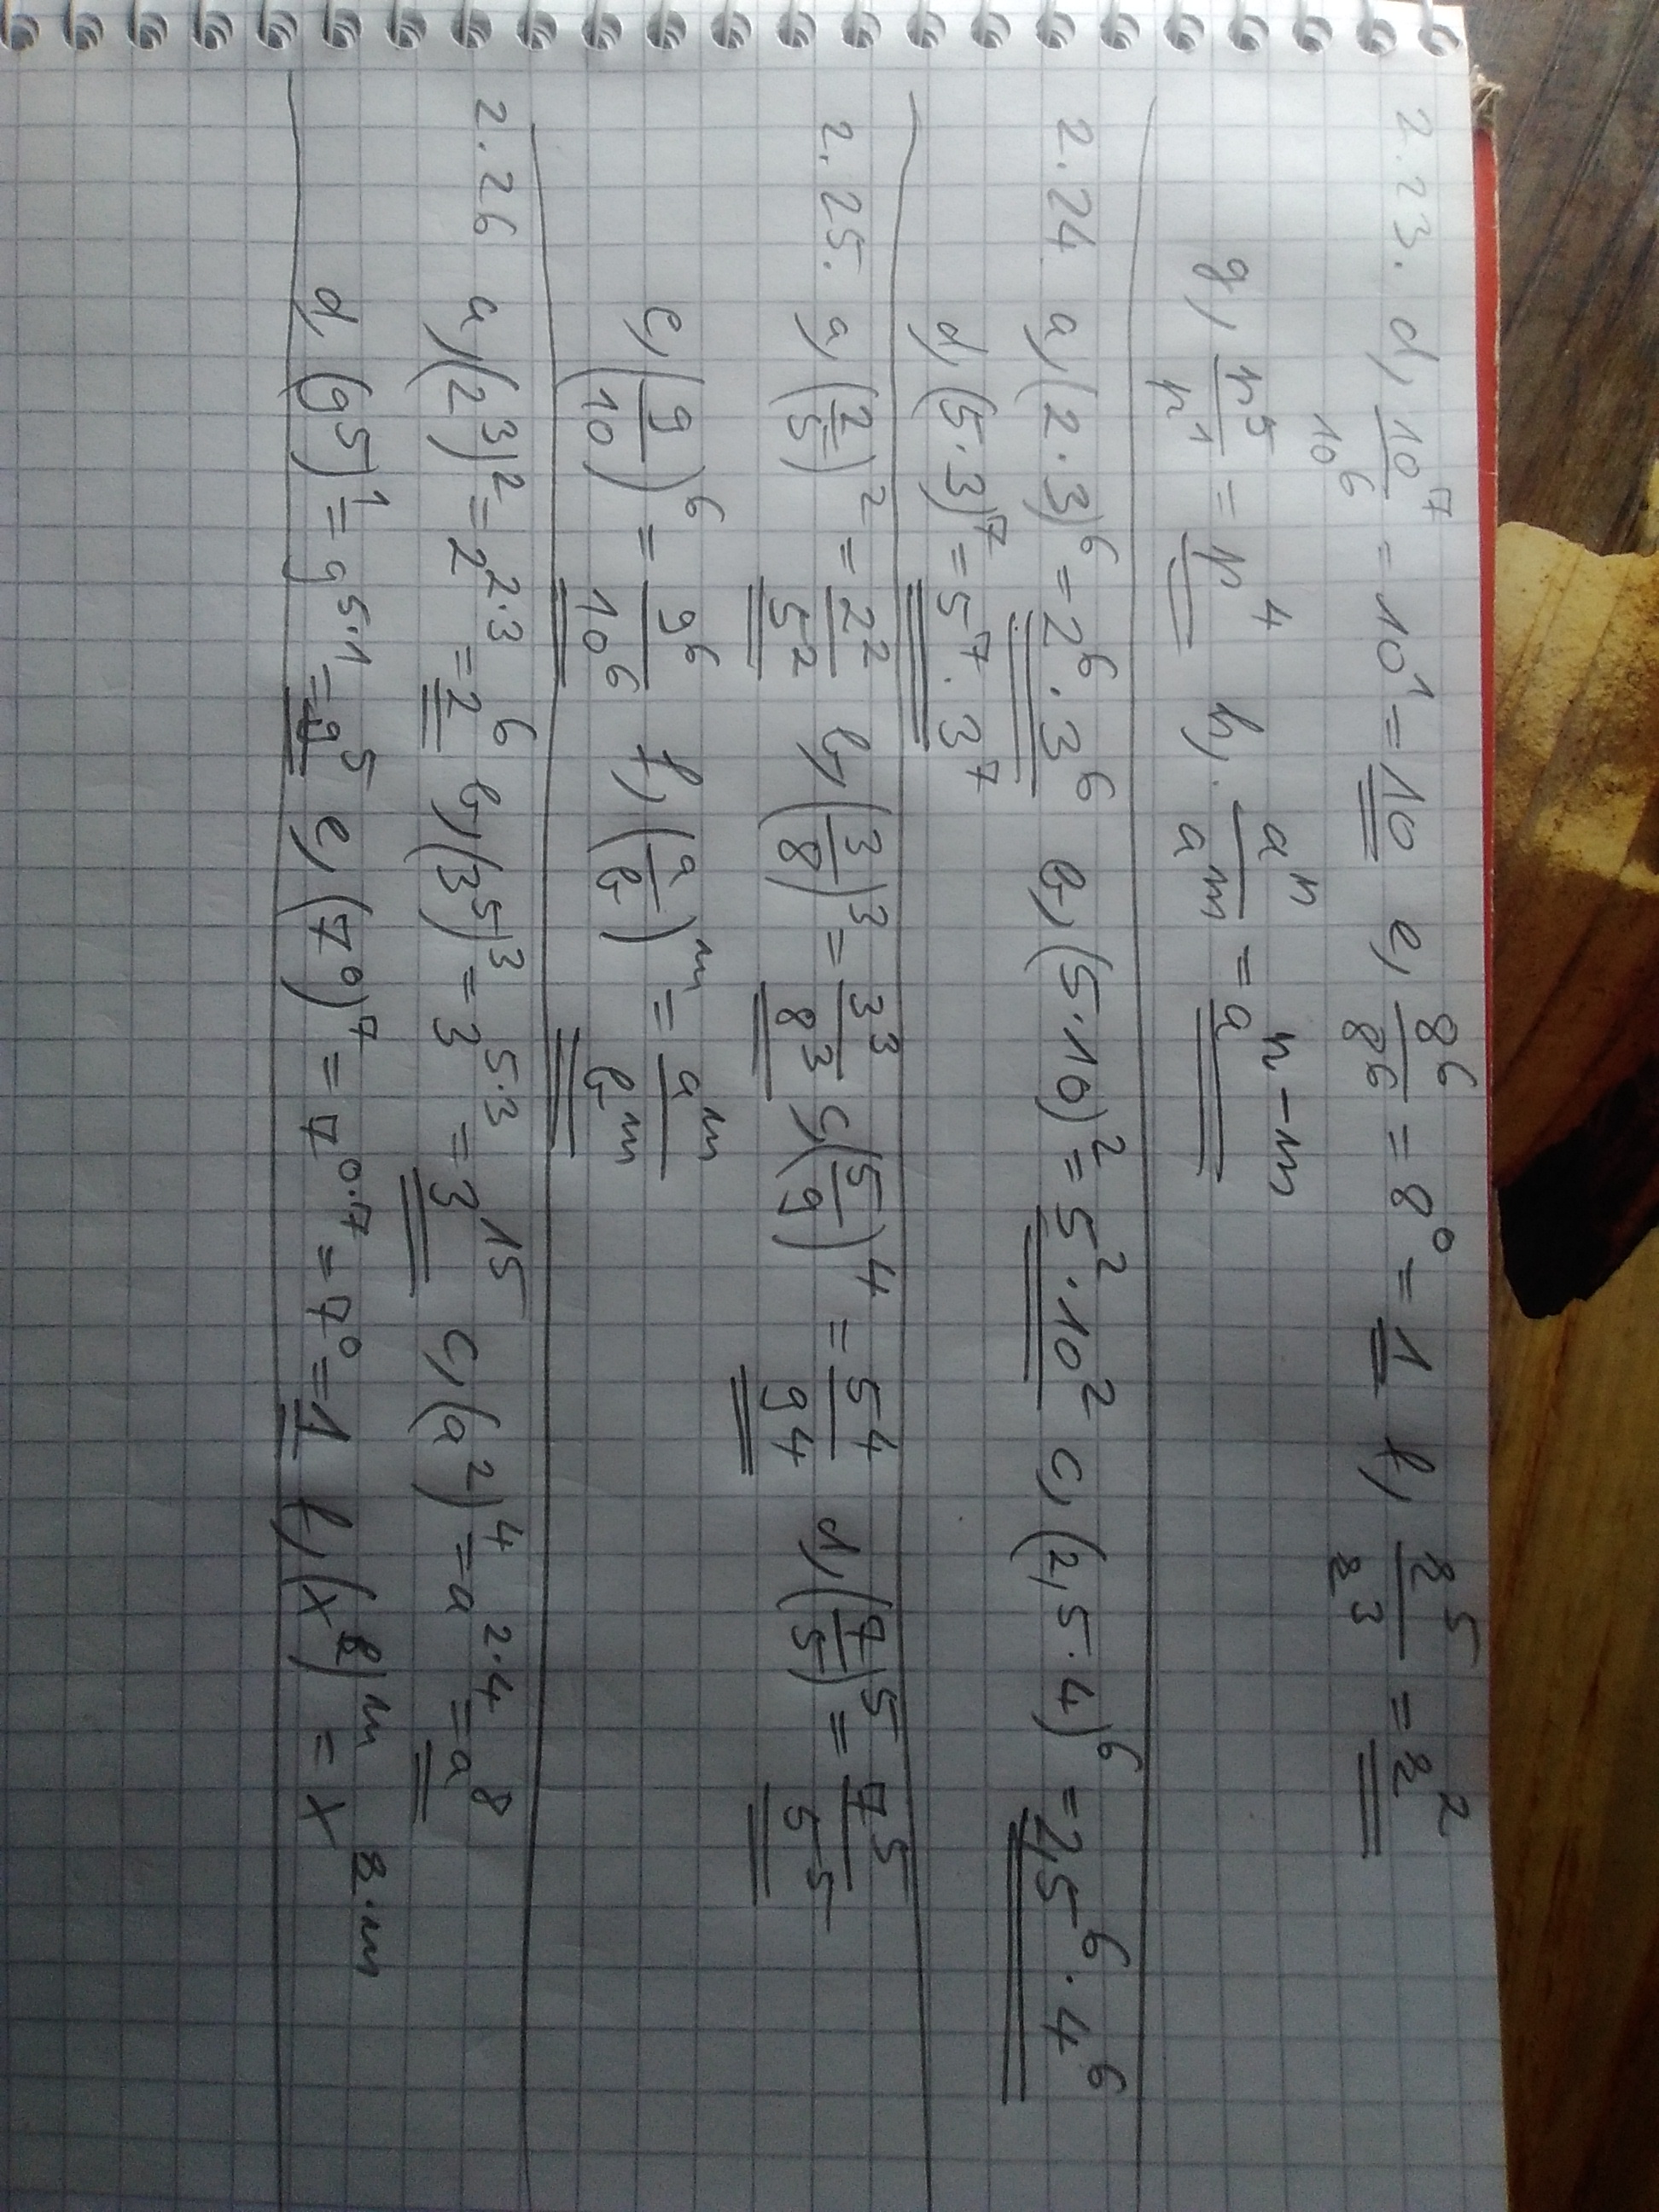 2.23. d, 10⁷/10⁶ = 10¹ = 10 e, 8⁶/8⁶ = 8⁰ = 1 f, z⁵/z³ = z²
g, p⁵/p¹ = p⁴ h, aⁿ/aᵐ = aⁿ⁻ᵐ
2.24 a, (2·3)⁶ = 2⁶·3⁶ b, (5·10)² = 5²·10² c, (2,5·4)⁶ = 2,5⁶·4⁶
d, (5·3)⁷ = 5⁷·3⁷
2.25. a, (2/5)² = 2²/5² b, (3/8)³ = 3³/8³ c, (5/9)⁴ = 5⁴/9⁴ d, (7/5)⁵ = 7⁵/5⁵
e, (9/10)⁶ = 9⁶/10⁶ f, (a/b)ᵐ = aᵐ/bᵐ
2.26 a, (2³)² = 2²·³ = 2⁶ b, (3⁵)³ = 3⁵·³ = 3¹⁵ c, (a²)⁴ = a²·⁴ = a⁸
d, (9⁵)¹ = 9⁵·¹ = 9⁵ e, (7⁰)⁷ = 7⁰·⁷ = 7⁰ = 1